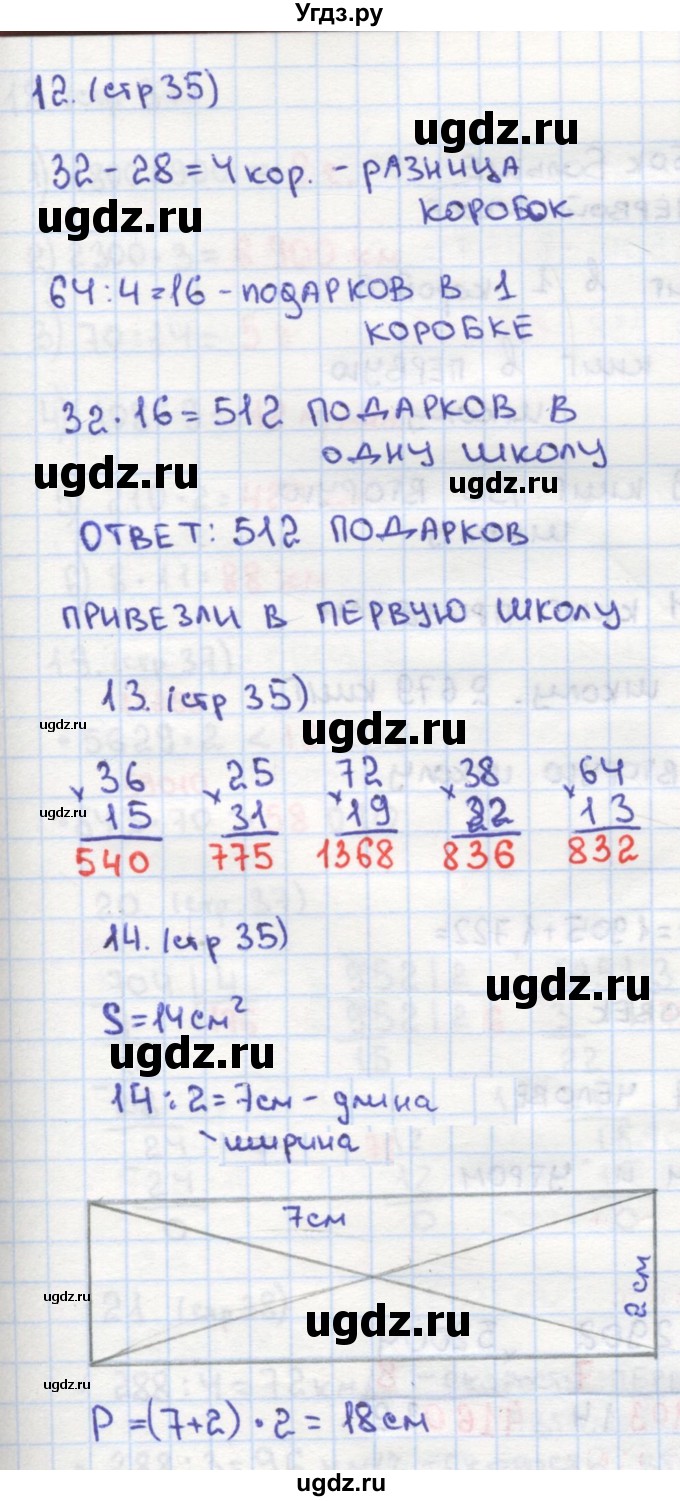 Угдз.ру
12. (стр 35)
ugdz.ru
32 - 28 = 4 кор. - РАЗНИЦА
ugdz.ru
КОРОБОК
64 : 4 = 16 - ПОДАРКОВ В 1
КОРОБКЕ
32 · 16 = 512 ПОДАРКОВ В
ОДНУ ШКОЛУ
ugdz.ru
ugdz.ru
ОТВЕТ: 512 ПОДАРКОВ
ПРИВЕЗЛИ В ПЕРВУЮ ШКОЛУ
13. (стр 35)
ugdz.ru
ugdz.ru
× 36 × 25 × 72 × 38 × 64
ugdz.ru
15 31 19 22 13
540 775 1368 836 832
14. (стр 35)
ugdz.ru
S = 14 см²
ugdz.ru
14 : 2 = 7 см - длина
ширина
7 см
2 см
ugdz.ru
ugdz.ru
ugdz.ru
P = (7+2) · 2 = 18 см
ugdz.ru